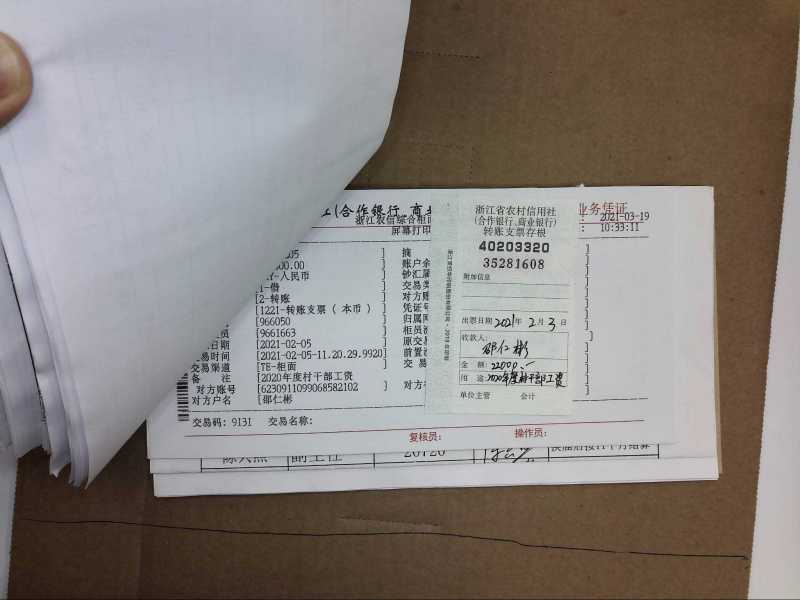 (合作银行、商业
业务凭证
浙江农信综合柜面
2021-03-19
屏幕打印
10:33:11
005
摘
000.00
账户余
人民币
钞汇属
1-借
交易类
2-转账
对方账
1221-转账支票(本币)
凭证号
966050
归属网
员 9661663
柜员流
日期 2021-02-05
原交易
交易时间 2021-02-05-11.20.29.9920
前置流
交易渠道 TE-柜面
交 易
备 注 2020年度村干部工资
对方账号 6230911099068582102
对方行
对方户名 邵仁彬
交易码: 9131 交易名称:
复核员: 操作员:
浙江省农村信用社
(合作银行、商业银行)
转账支票存根
40203320
35281608
附加信息
出票日期 2021年 2月 3日
收款人:
邵仁彬
金 额: 22000.—
用 途: 2020年度村干部工资
单位主管 会计
副主任
20120